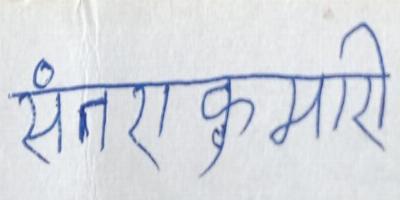 संतरा कुमारी